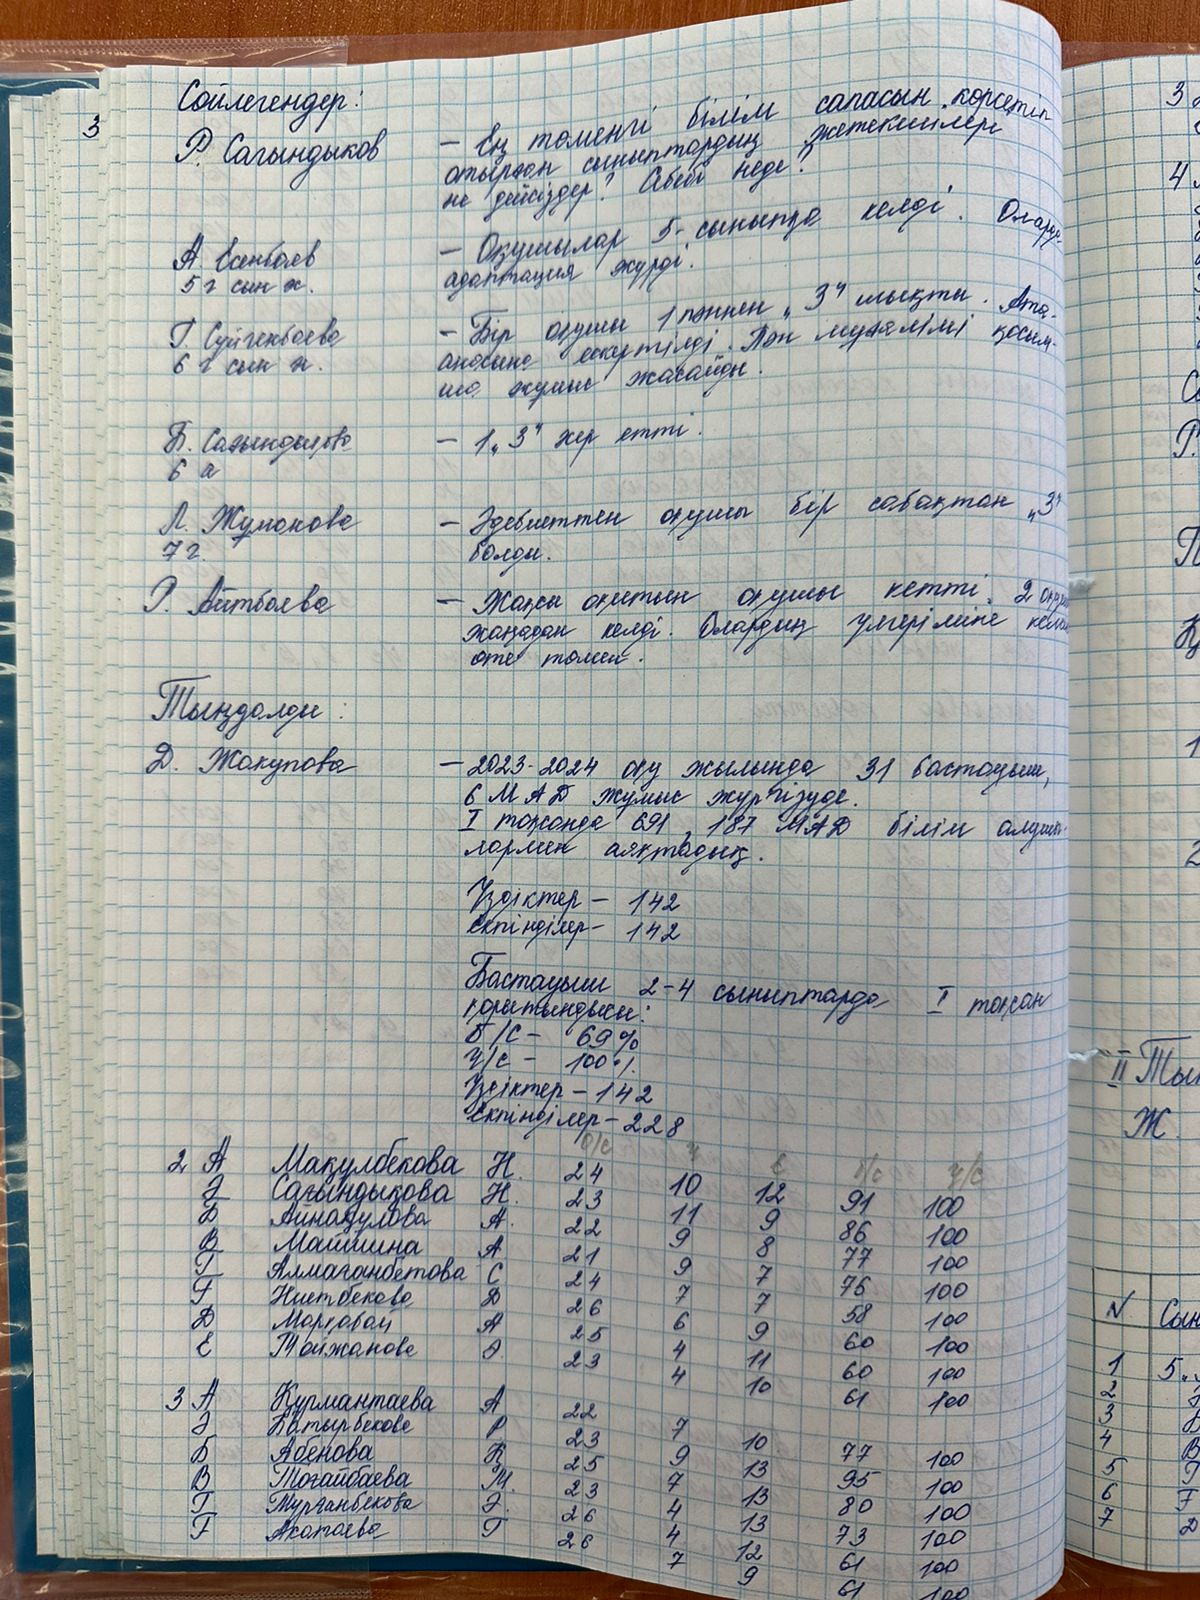 3
Сөйлегендер:
Р. Сағындықов – Ең төменгі білім сапасын көрсетіп
отырған сыныптардың жетекшілері
не дейсіздер? Себебі неде?
А. Есенбаев – Оқушылар 5-сыныпқа келді. Оларда
5 г сын ж. адаптация жүрді.
Г. Сүйгенбаева – Бір оқушы 1 пәннен „3" шықты. Ата-
6 г сын ж. анасына ескертілді. Пән мұғалімі қосым-
ша жұмыс жасайды.
Б. Сағындықова – 1 „3" кер етті.
6 а
Л. Жунокова – Әдебиеттен оқушы бір сабақтан „3"
7 г. болды.
Р. Айтбаева – Жақсы оқитын оқушы кетті. 2 оқушы
жаңадан келді. Олардың үлгеріміне
өте төмен.
Тыңдалды:
Д. Жакупова – 2023-2024 оқу жылында 31 бастауыш,
6 МАД жұмыс жүргізуде.
I тоқсанда 691, 187 МАД білім алушы-
лармен аяқтадық.
Үздіктер – 142
Екпінділер – 142
Бастауыш 2-4 сыныптарда I тоқсан
қорытындысы:
Б/С – 69%
Ү/С – 100%
Үздіктер – 142
Екпінділер – 228
о/с ү е б/с ү/с
2 А Мақулбекова Н. 24 10 12 91 100
Ә Сағындықова Н. 23 11 9 86 100
Б Айнақулова А. 22 9 8 77 100
В Машшина А 21 9 7 76 100
Г Алмаганбетова С 24 7 7 58 100
Ғ Ниетбекова Д 26 6 9 60 100
Д Марқабай А 25 4 11 60 100
Е Тойжанова Ә. 23 4 10 61 100
3 А Құрмантаева А 22 7 10 77 100
Ә Батырбекова Р 23 9 13 95 100
Б Абенова К 25 7 13 80 100
В Тоғайбаева М. 23 4 13 73 100
Г Тұрғанбекова Ә. 26 4 12 61 100
Ғ Акатаева Г 26 7 9 61 100
3
4
Р.
1
2
II Тың
Ж.
N Сын
1 5 „
2
3
4 В
5 Г
6 Ғ
7 Д